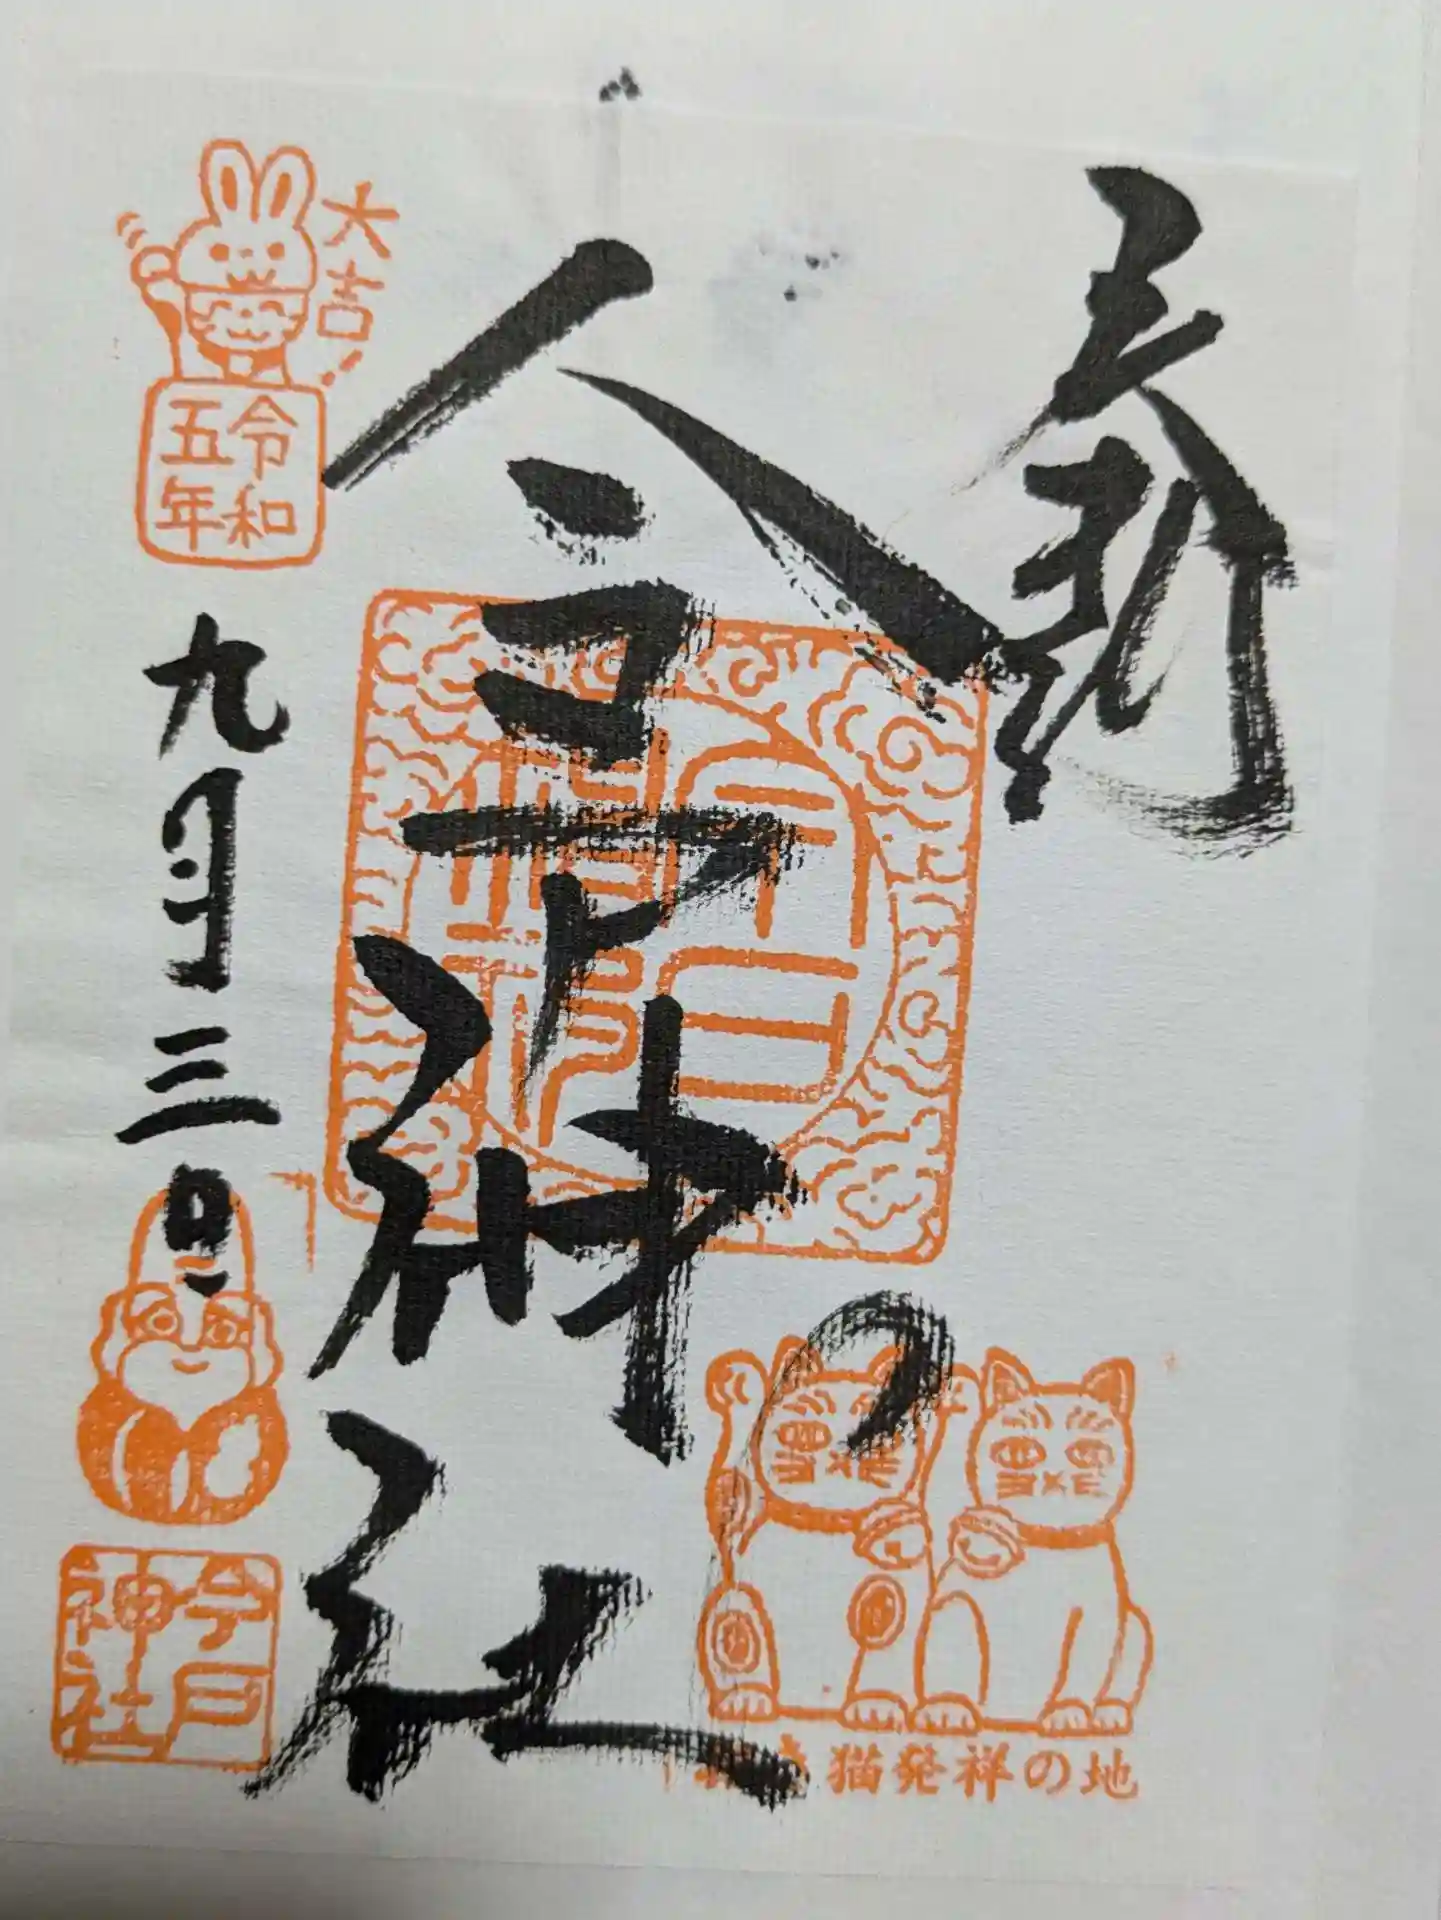 奉拝
今戸神社
大吉！
令和
五年
九月三日
今戸
神社
招き猫発祥の地